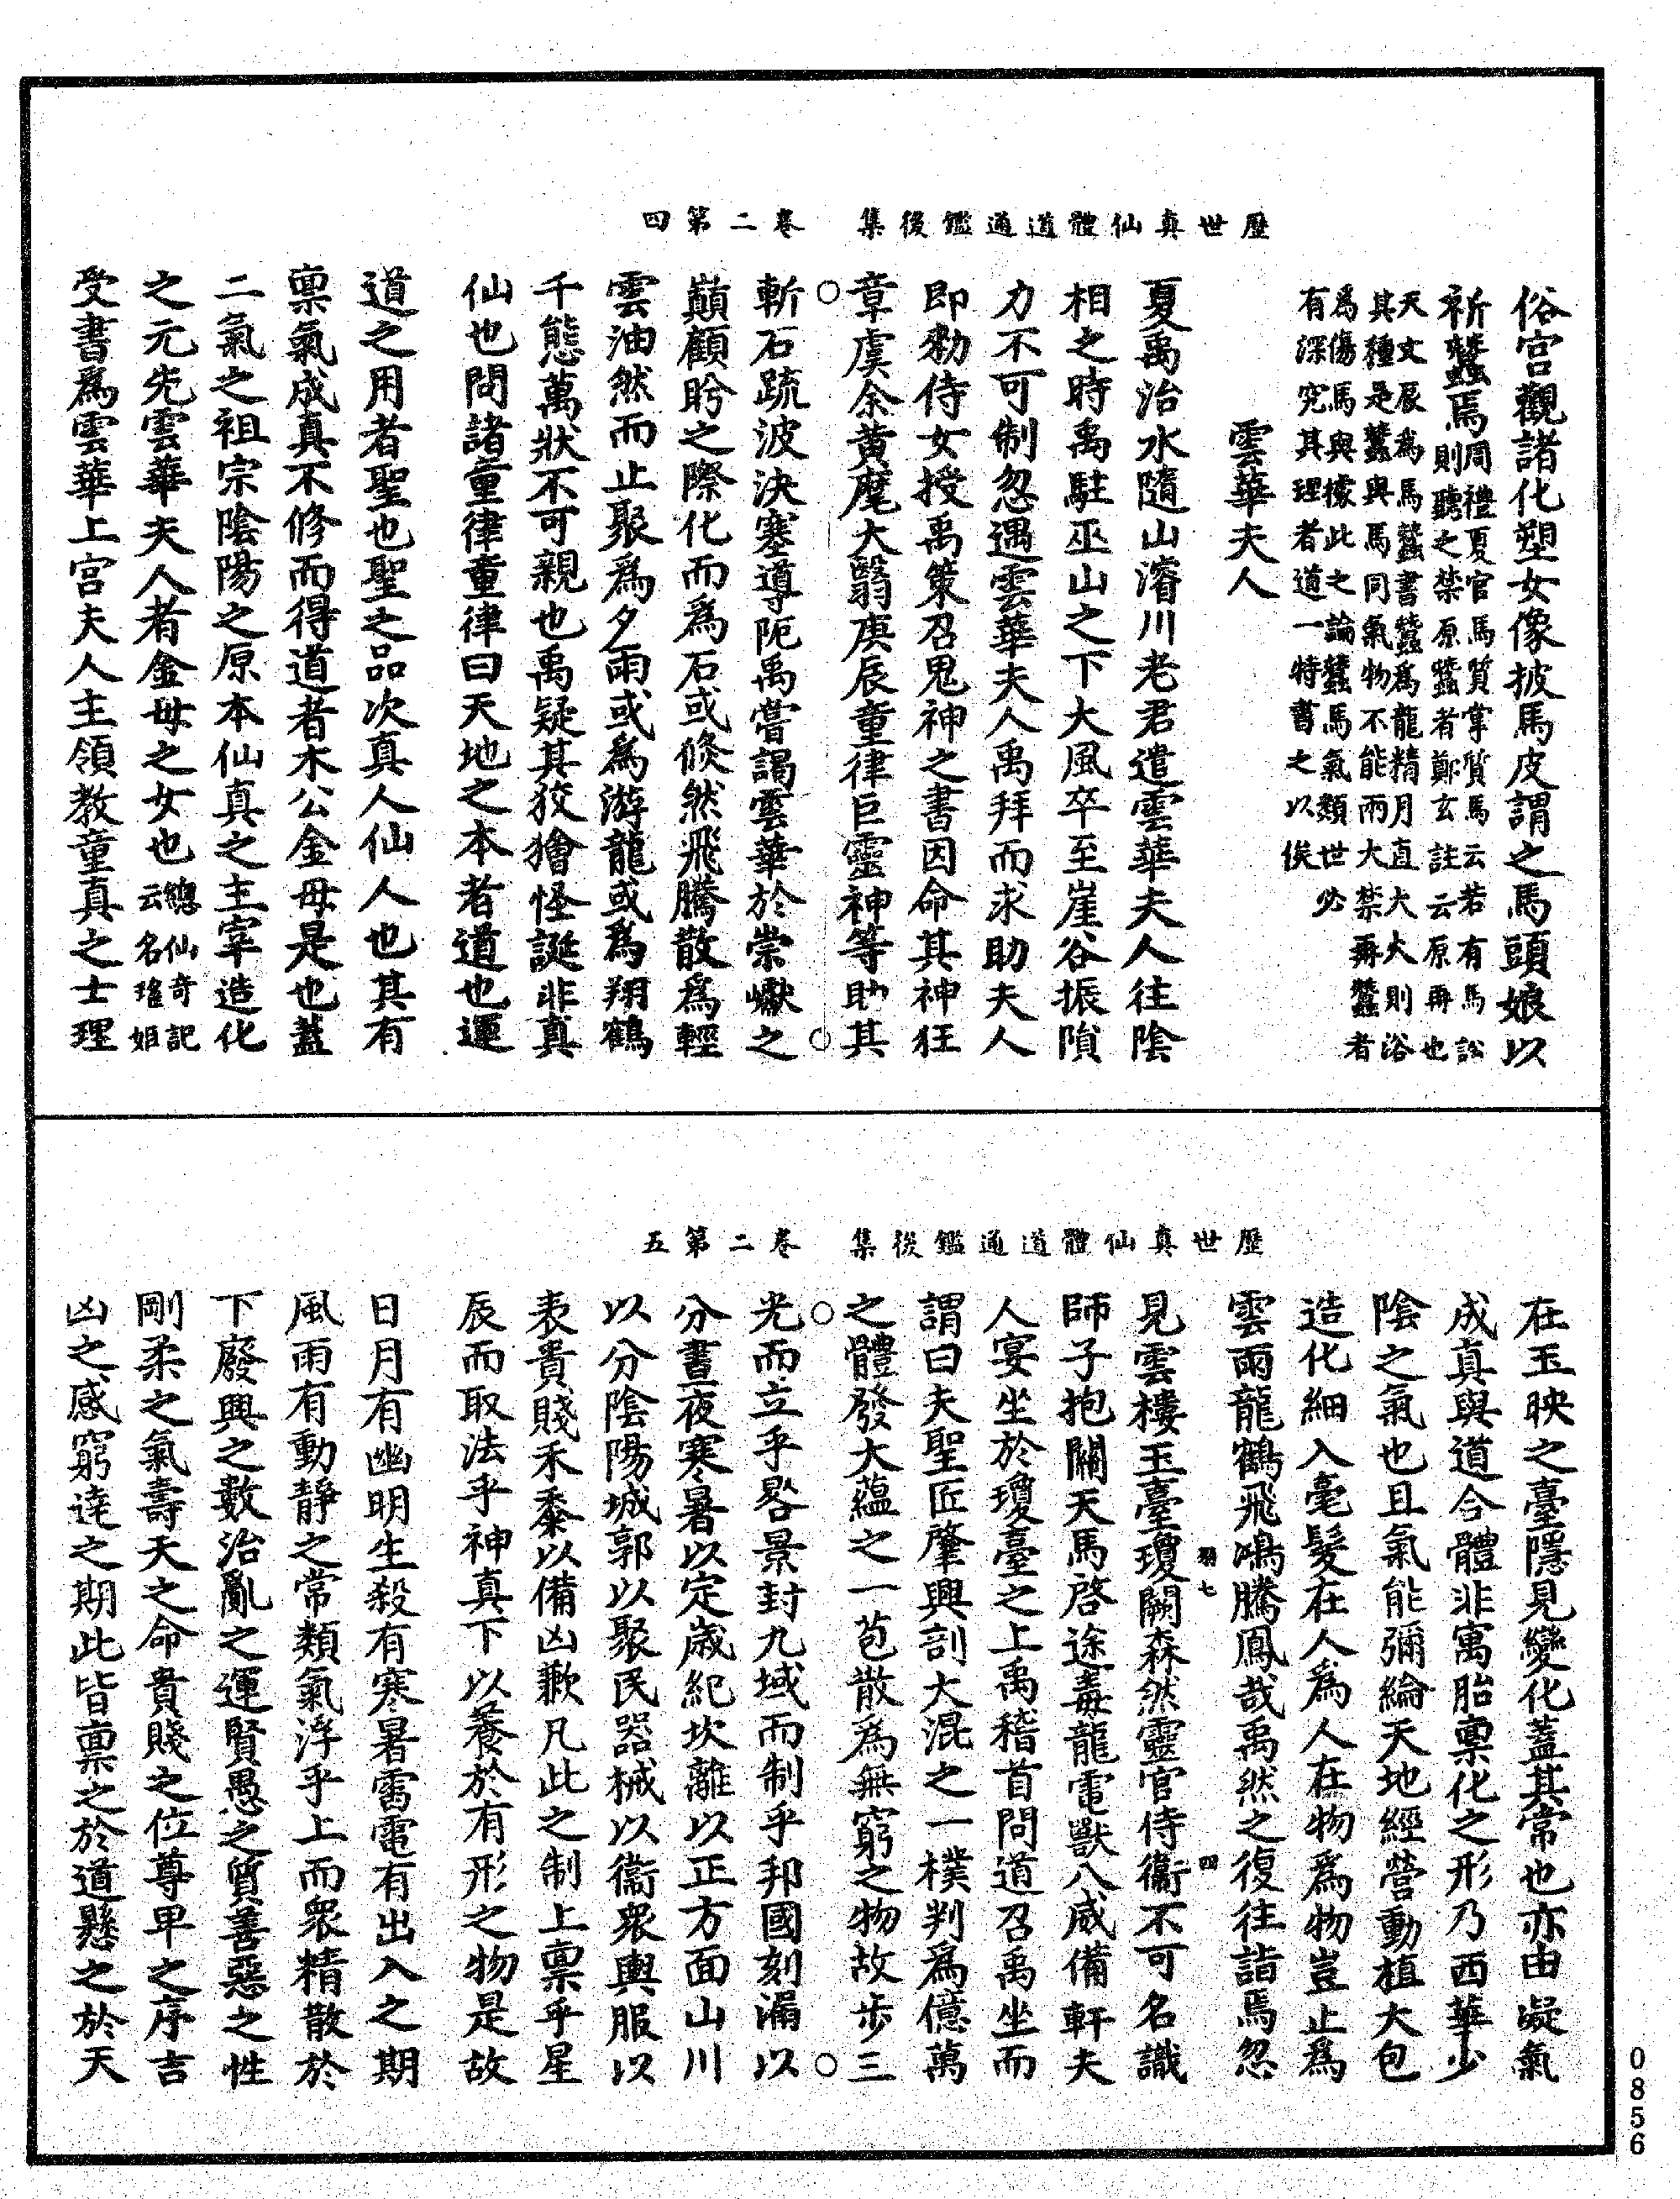 歷世真仙體道通鑑後集　卷二第四
俗宮觀諸化塑女像披馬皮謂之馬頭娘以
祈蠶焉周禮夏官馬質掌質馬云若有馬訟
則聽之禁原蠶者鄭玄註云原再也
天文辰為馬蠶書蠶為龍精月直大火則浴
其種是蠶與馬同氣物不能兩大禁再蠶者
為傷馬與據此之論蠶馬氣類世必
有深究其理者道一特書之以俟
雲華夫人
夏禹治水隨山濬川老君遣雲華夫人往陰
相之時禹駐巫山之下大風卒至崖谷振隕
力不可制忽遇雲華夫人禹拜而求助夫人
即勑侍女授禹策召鬼神之書因命其神狂
章虞余黃麾大翳庚辰童律巨靈神等助其
斬石疏波決塞導阨禹嘗謁雲華於崇巘之
巔顧盻之際化而為石或倐然飛騰散為輕
雲油然而止聚為夕雨或為游龍或為翔鶴
千態萬狀不可親也禹疑其狡獪怪誕非真
仙也問諸童律童律曰天地之本者道也運
道之用者聖也聖之品次真人仙人也其有
禀氣成真不修而得道者木公金母是也蓋
二氣之祖宗陰陽之原本仙真之主宰造化
之元先雲華夫人者金母之女也總仙奇記
云名瑤姬
受書為雲華上宮夫人主領教童真之士理
歷世真仙體道通鑑後集　卷二第五
在玉映之臺隱見變化蓋其常也亦由凝氣
成真與道合體非寓胎禀化之形乃西華少
陰之氣也且氣能彌綸天地經營動植大包
造化細入毫髮在人為人在物為物豈止為
雲雨龍鶴飛鴻騰鳳哉禹然之復往詣焉忽
七
四
見雲樓玉臺瓊闕森然靈官侍衞不可名識
師子抱關天馬啓途毒龍電獸八威備軒夫
人宴坐於瓊臺之上禹稽首問道召禹坐而
謂曰夫聖匠肇興剖大混之一樸判為億萬
之體發大蘊之一苞散為無窮之物故步三
光而立乎晷景封九域而制乎邦國刻漏以
分晝夜寒暑以定歲紀坎離以正方面山川
以分陰陽城郭以聚民器械以衞衆輿服以
表貴賤禾黍以備凶歉凡此之制上禀乎星
辰而取法乎神真下以養於有形之物是故
日月有幽明生殺有寒暑雷電有出入之期
風雨有動靜之常類氣浮乎上而衆精散於
下廢興之數治亂之運賢愚之質善惡之性
剛柔之氣壽夭之命貴賤之位尊卑之序吉
凶之感窮達之期此皆禀之於道懸之於天
0856